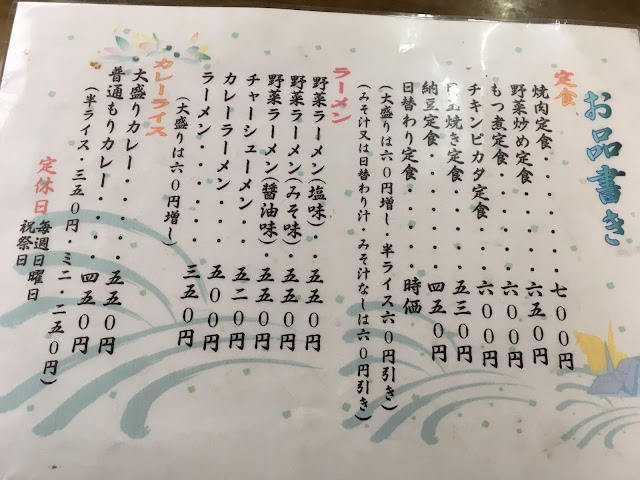 お品書き
定食
焼肉定食・・・・・・・七〇〇円
野菜炒め定食・・・・・六五〇円
もつ煮定食・・・・・・六〇〇円
チキンピカタ定食・・・六〇〇円
目玉焼き定食・・・・・五三〇円
納豆定食・・・・・・・四五〇円
日替わり定食・・・・・時価
(大盛りは六〇円増し・半ライス六〇円引き)
(みそ汁又は日替わり汁・みそ汁なしは六〇円引き)
ラーメン
野菜ラーメン(塩味)・・五五〇円
野菜ラーメン(みそ味)・五五〇円
野菜ラーメン(醤油味)・五五〇円
チャーシューメン・・・五二〇円
カレーラーメン・・・・五〇〇円
ラーメン・・・・・・・三五〇円
(大盛りは六〇円増し)
カレーライス
大盛りカレー・・・・・五五〇円
普通もりカレー・・・・四五〇円
(半ライス・三五〇円・ミニ・二五〇円)
定休日
毎週日曜日
祝祭日